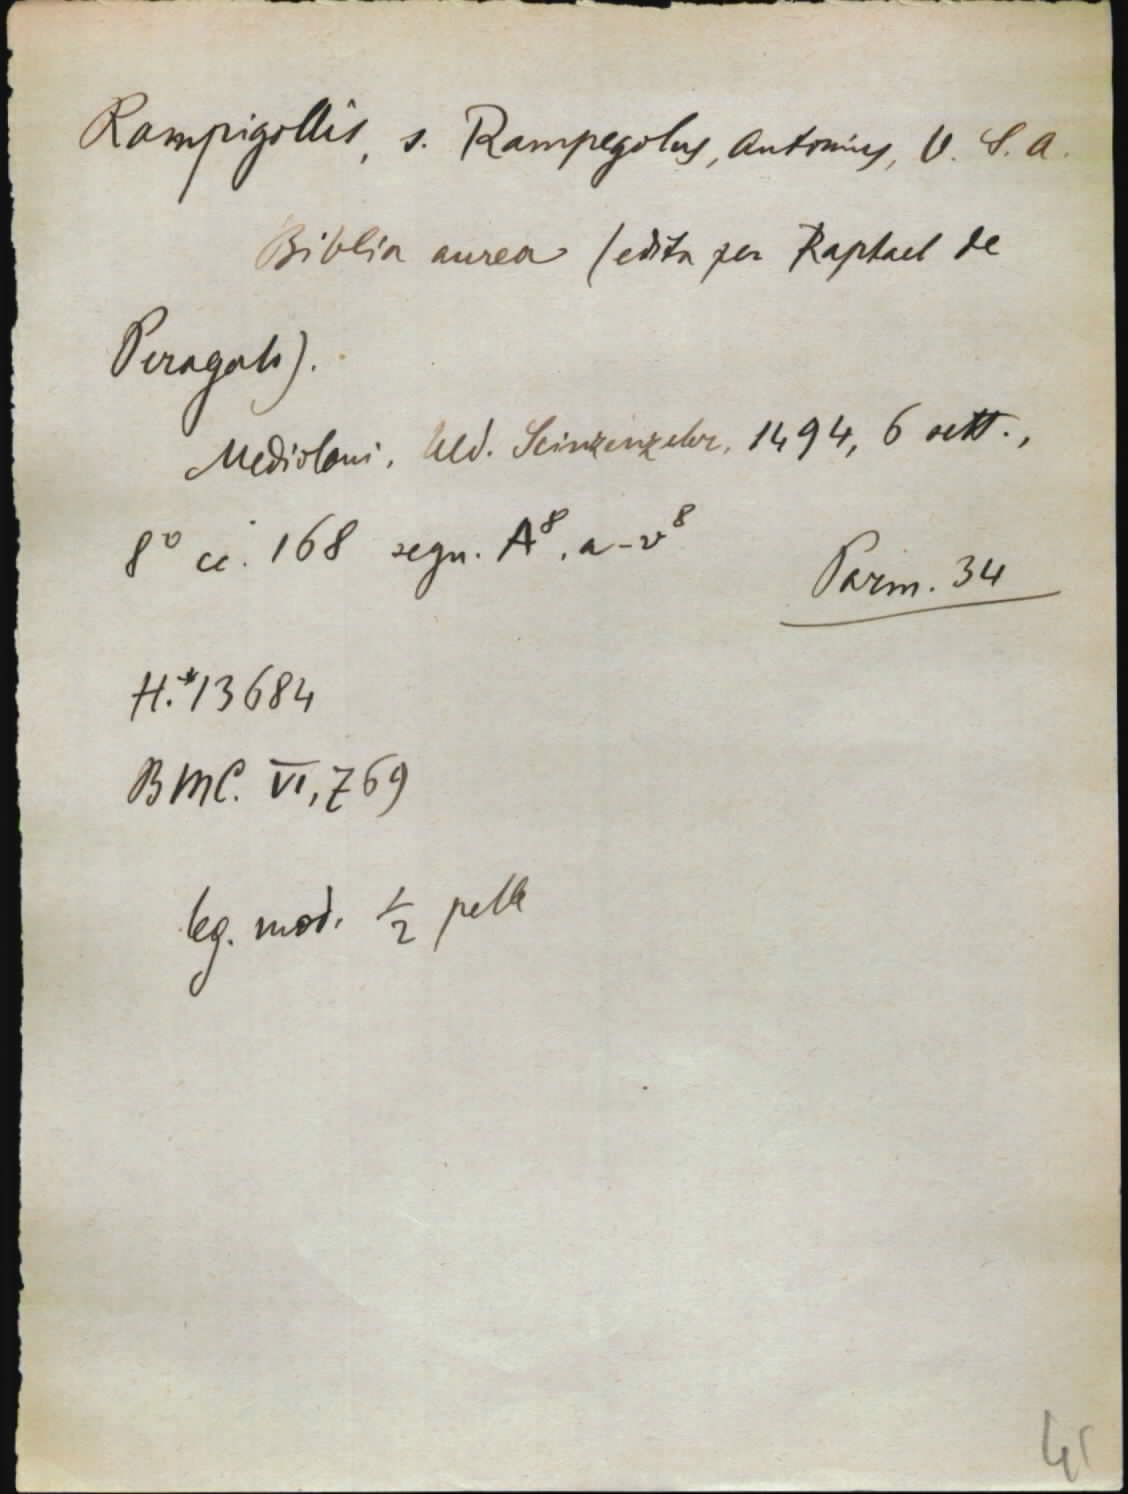 Rampigollis, s. Rampegolus, Antonius, O. S. A.
Biblia aurea (edita per Raphael de
Peragalo).
Mediolani, Uld. Scinzenzeler, 1494, 6 sett.,
8° cc. 168 segn. A⁸, a-v⁸
Parm. 34
H.*13684
BMC. VI, 769
leg. mod. ½ pelle